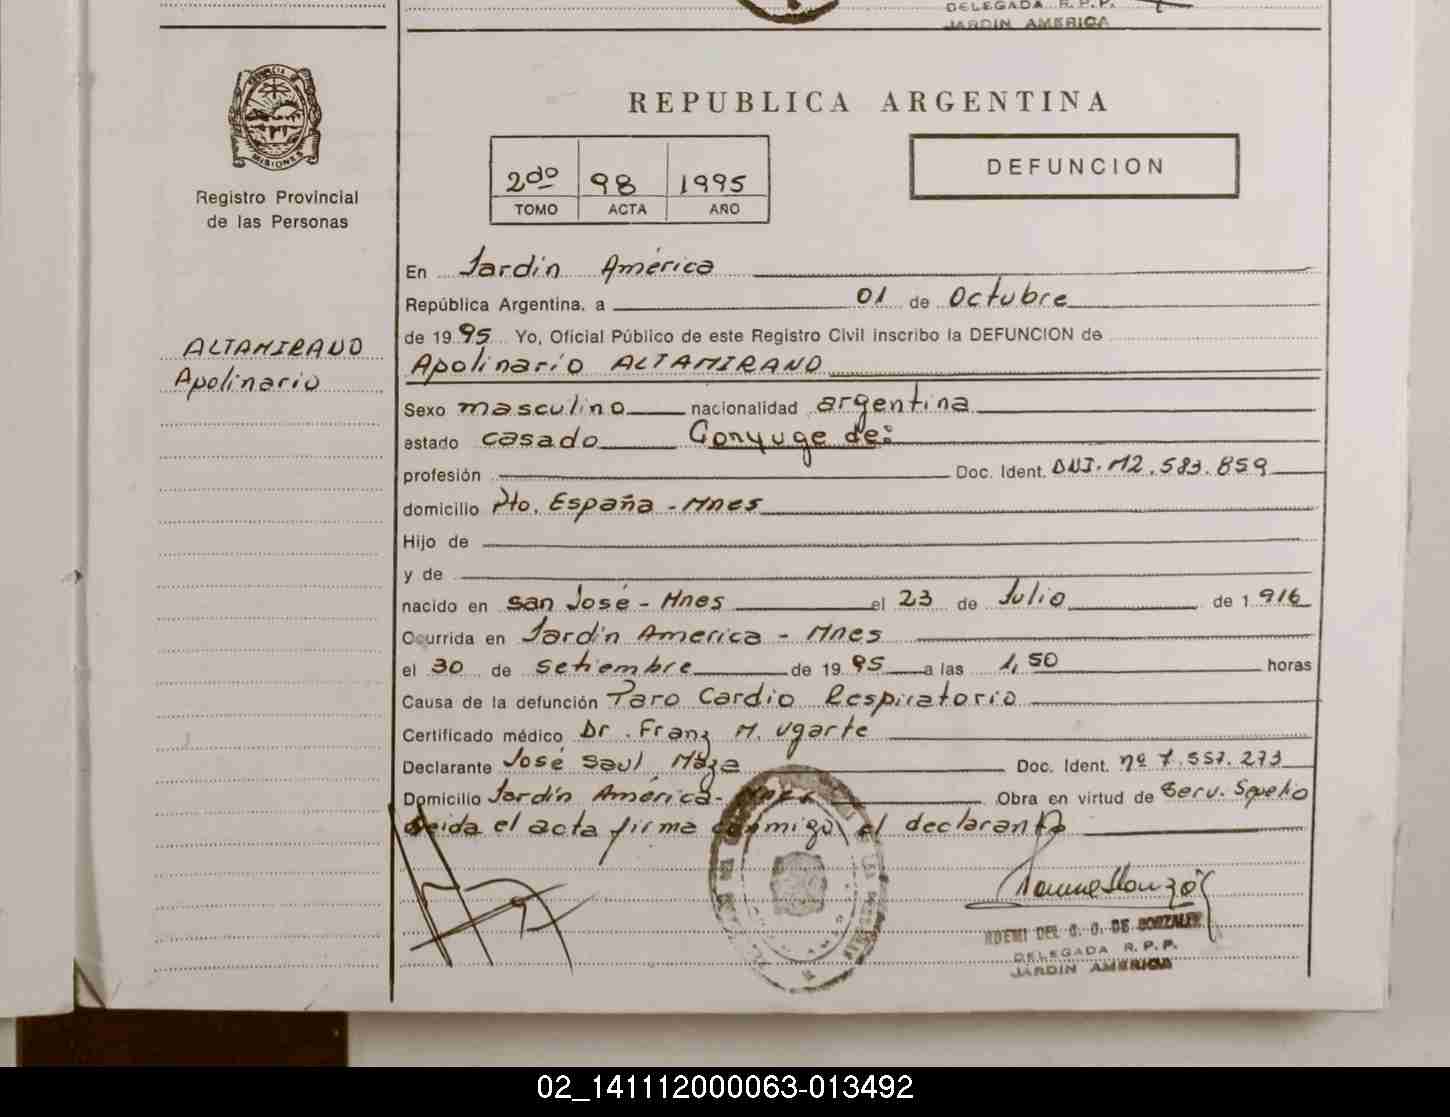 DELEGADA R.P.P.
JARDIN AMERICA
PROVINCIA DE
MISIONES
Registro Provincial
de las Personas
REPUBLICA ARGENTINA
2do 98 1995
TOMO ACTA AÑO
DEFUNCION
En Jardín América
República Argentina, a 01 de Octubre
de 1995 Yo, Oficial Público de este Registro Civil inscribo la DEFUNCION de
ALTAMIRANO
Apolinario
Apolinario ALTAMIRANO
Sexo masculino nacionalidad argentina
estado casado Conyuge de:
profesión Doc. Ident. DNI. M2.583.859
domicilio Pto. España - Mnes
Hijo de
y de
nacido en San José - Mnes el 23 de Julio de 1.916
Ocurrida en Jardín America - Mnes
el 30 de setiembre de 1995 a las 1,50 horas
Causa de la defunción Paro Cardio Respiratorio
Certificado médico Dr. Franz M. Ugarte
Declarante José Saul Maza Doc. Ident. nº 7.557.273
Domicilio Jardín América - Mnes Obra en virtud de Serv. Sepelio
leida el acta firma conmigo el declarante
NOEMI DEL C. G. DE GONZALEZ
DELEGADA R.P.P.
JARDIN AMERICA
02_141112000063-013492